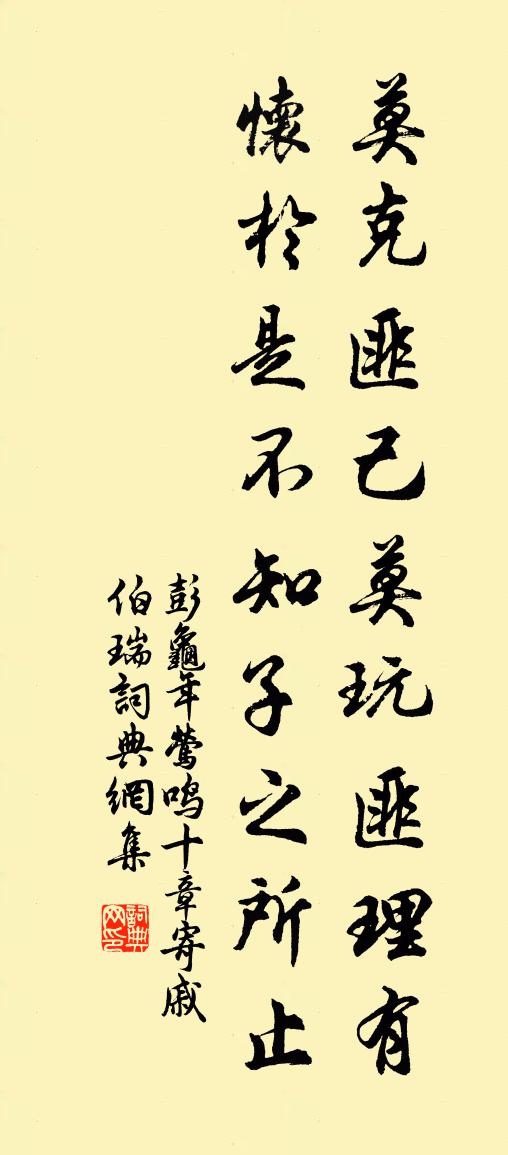 莫克匪己莫玩匪理有
懷於是不知子之所止
彭龜年鶯鳴十章寄戚
伯瑞詞典網集
詞典
网印